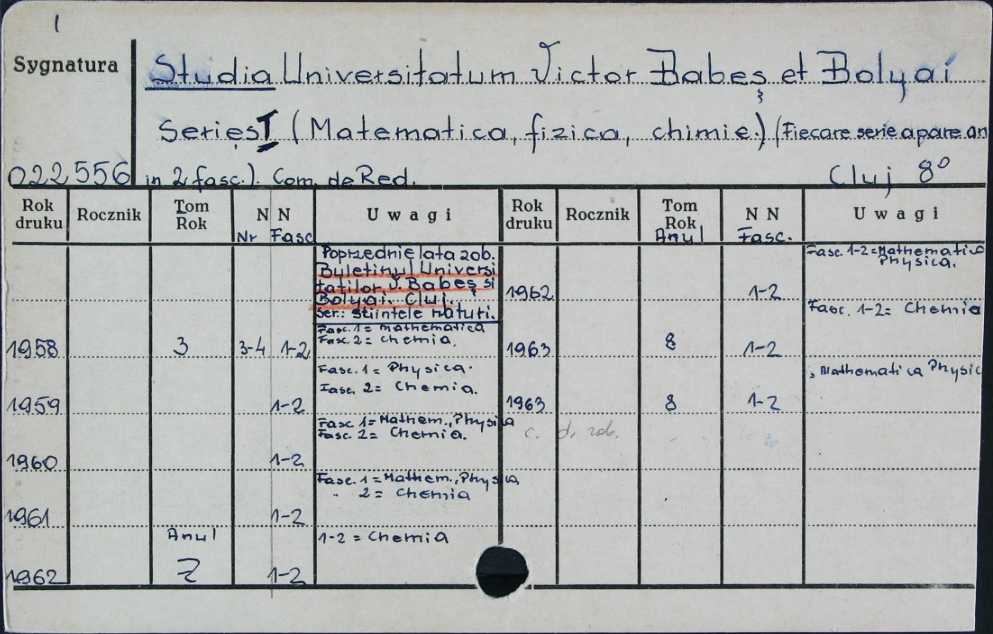 1
Sygnatura
Studia Universitatum Victor Babeș et Bolyai
Series I (Matematica, fizica, chimie.) (Fiecare serie apare an
022556 in 2 fasc.). Com. de Red. Cluj 8°
Rok druku Rocznik Tom Rok N N Uwagi Rok druku Rocznik Tom Rok N N Uwagi
Nr Fasc Anul Fasc.
Poprzednie lata zob.
Buletinul Universi
taților V. Babeș si
Bolyai. Cluj.
Ser.: stiintele naturi.
1962 1-2 Fasc. 1-2=Mathematica
Physica.
1958 3 3-4 1-2 Fasc. 1= Mathematica
Fasc 2= Chemia.
1963 8 1-2 Fasc. 1-2= Chemia
1959 1-2 Fasc. 1= Physica.
Fasc. 2= Chemia.
1963 8 1-2 Mathematica Physic
1960 1-2 Fasc 1= Mathem., Physica
Fasc. 2= Chemia.
c. d. zob.
1961 1-2 Fasc. 1= Mathem., Physica
" 2= Chemia
1962 Anul 7 1-2 1-2 = Chemia